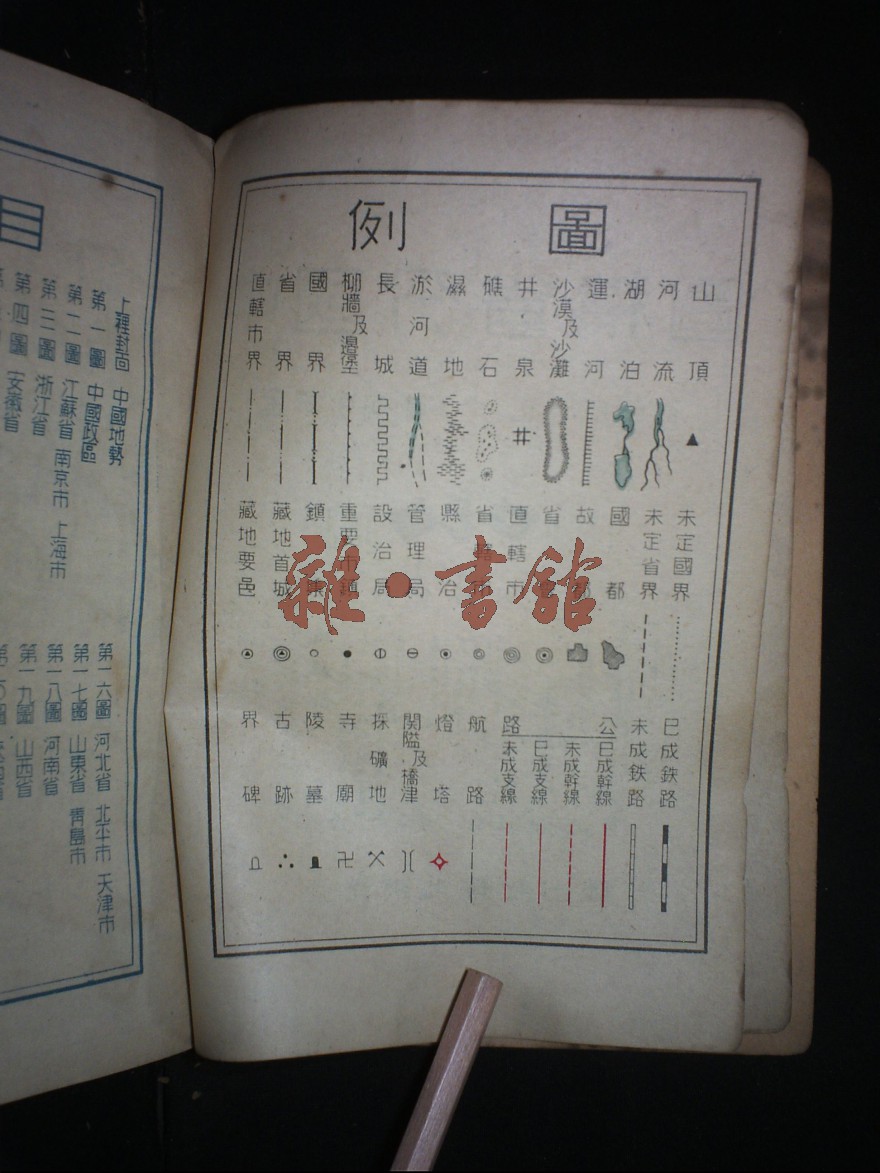 圖例
山頂
河流
湖泊
運河
沙漠及沙灘
井泉
礁石
濕地
淤河道
長城
柳牆及邊垒
國界
省界
直轄市界
未定國界
未定省界
國都
故都
省
直轄市
省
縣治
管理局
設治局
重要
鎮
藏地首城
藏地要邑
已成鉄路
未成鉄路
公路
已成幹線
未成幹線
已成支線
未成支線
航路
燈塔
関隘及橋津
採礦地
寺廟
陵墓
古跡
界碑
雜·書館
目
上裡封面 中國地勢
第一圖 中國政區
第二圖 江蘇省 南京市 上海市
第三圖 浙江省
第四圖 安徽省
第一六圖 河北省 北平市 天津市
第一七圖 山東省 青島市
第一八圖 河南省
第一九圖 山西省